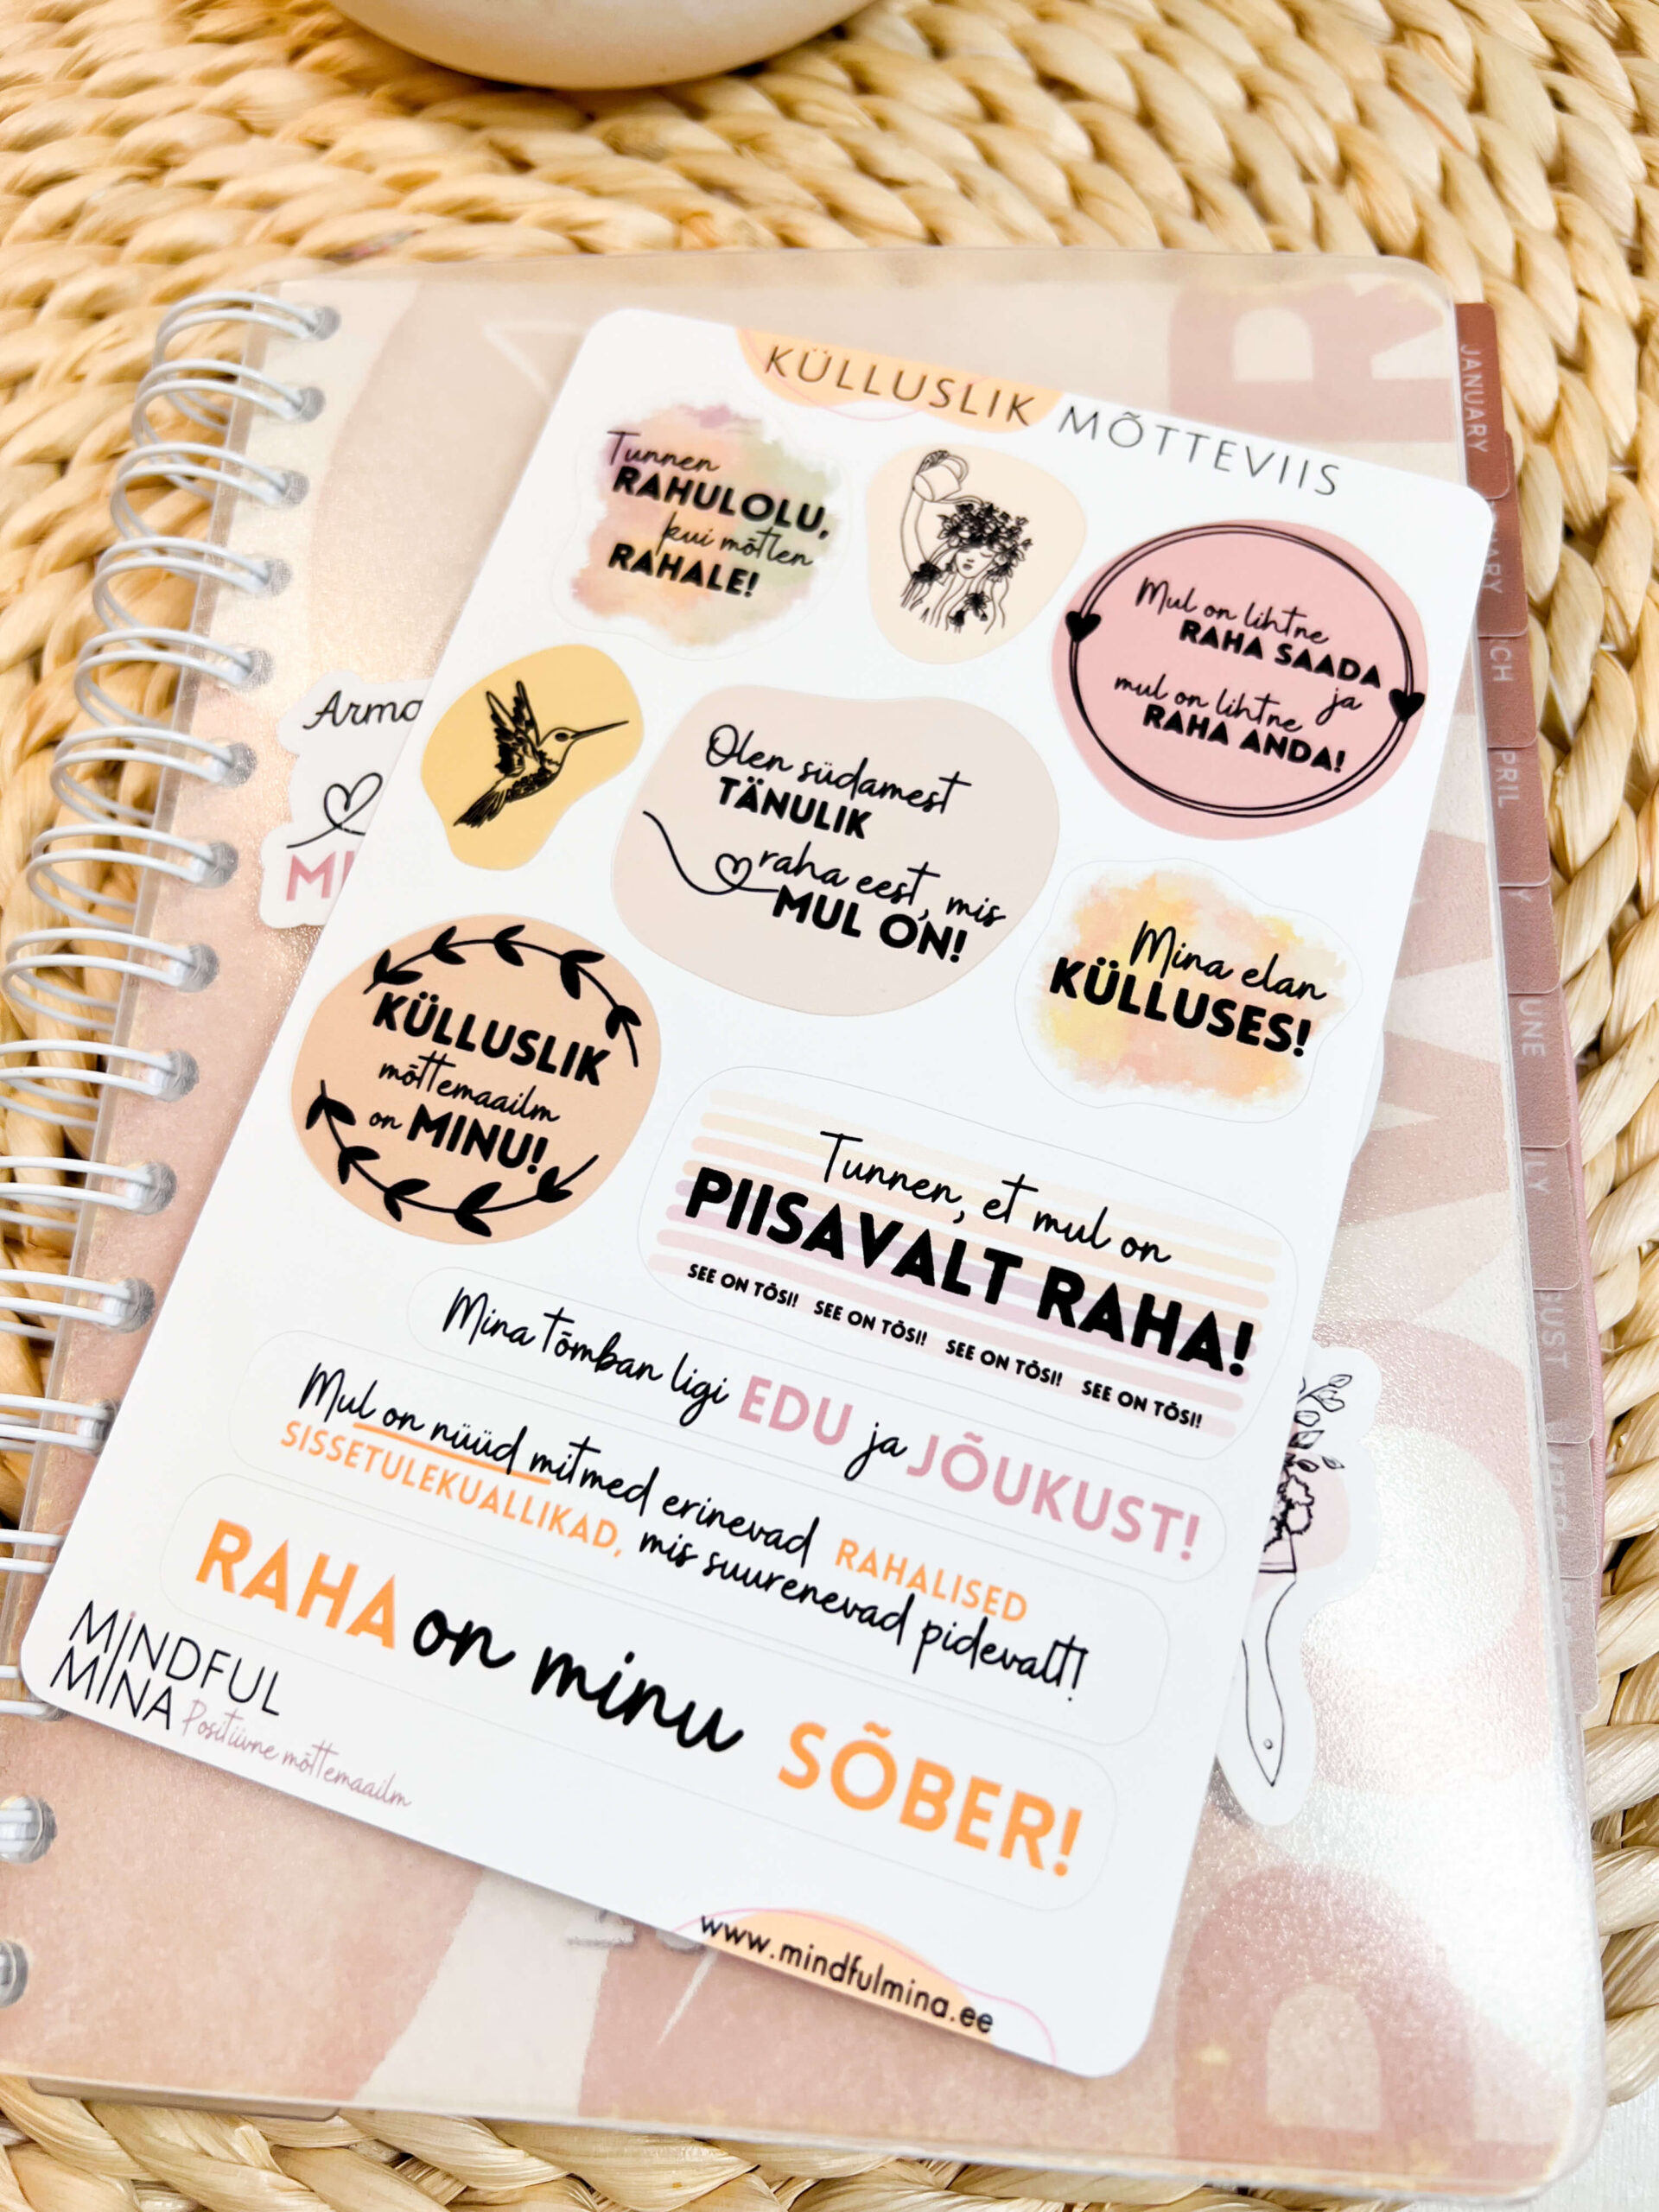 KÜLLUSLIK MÕTTEVIIS
Tunnen
RAHULOLU,
kui mõtlen
RAHALE!
Mul on lihtne
RAHA SAADA
ja
mul on lihtne
RAHA ANDA!
Olen südamest
TÄNULIK
raha eest, mis
MUL ON!
Mina elan
KÜLLUSES!
KÜLLUSLIK
mõttemaailm
on MINU!
Tunnen, et mul on
PIISAVALT RAHA!
SEE ON TÕSI! SEE ON TÕSI! SEE ON TÕSI! SEE ON TÕSI!
Mina tõmban ligi EDU ja JÕUKUST!
Mul on nüüd mitmed erinevad RAHALISED
SISSETULEKUALLIKAD, mis suurenevad pidevalt!
RAHA on minu SÕBER!
MINDFUL
MINA Positiivne mõttemaailm
www.mindfulmina.ee
JANUARY